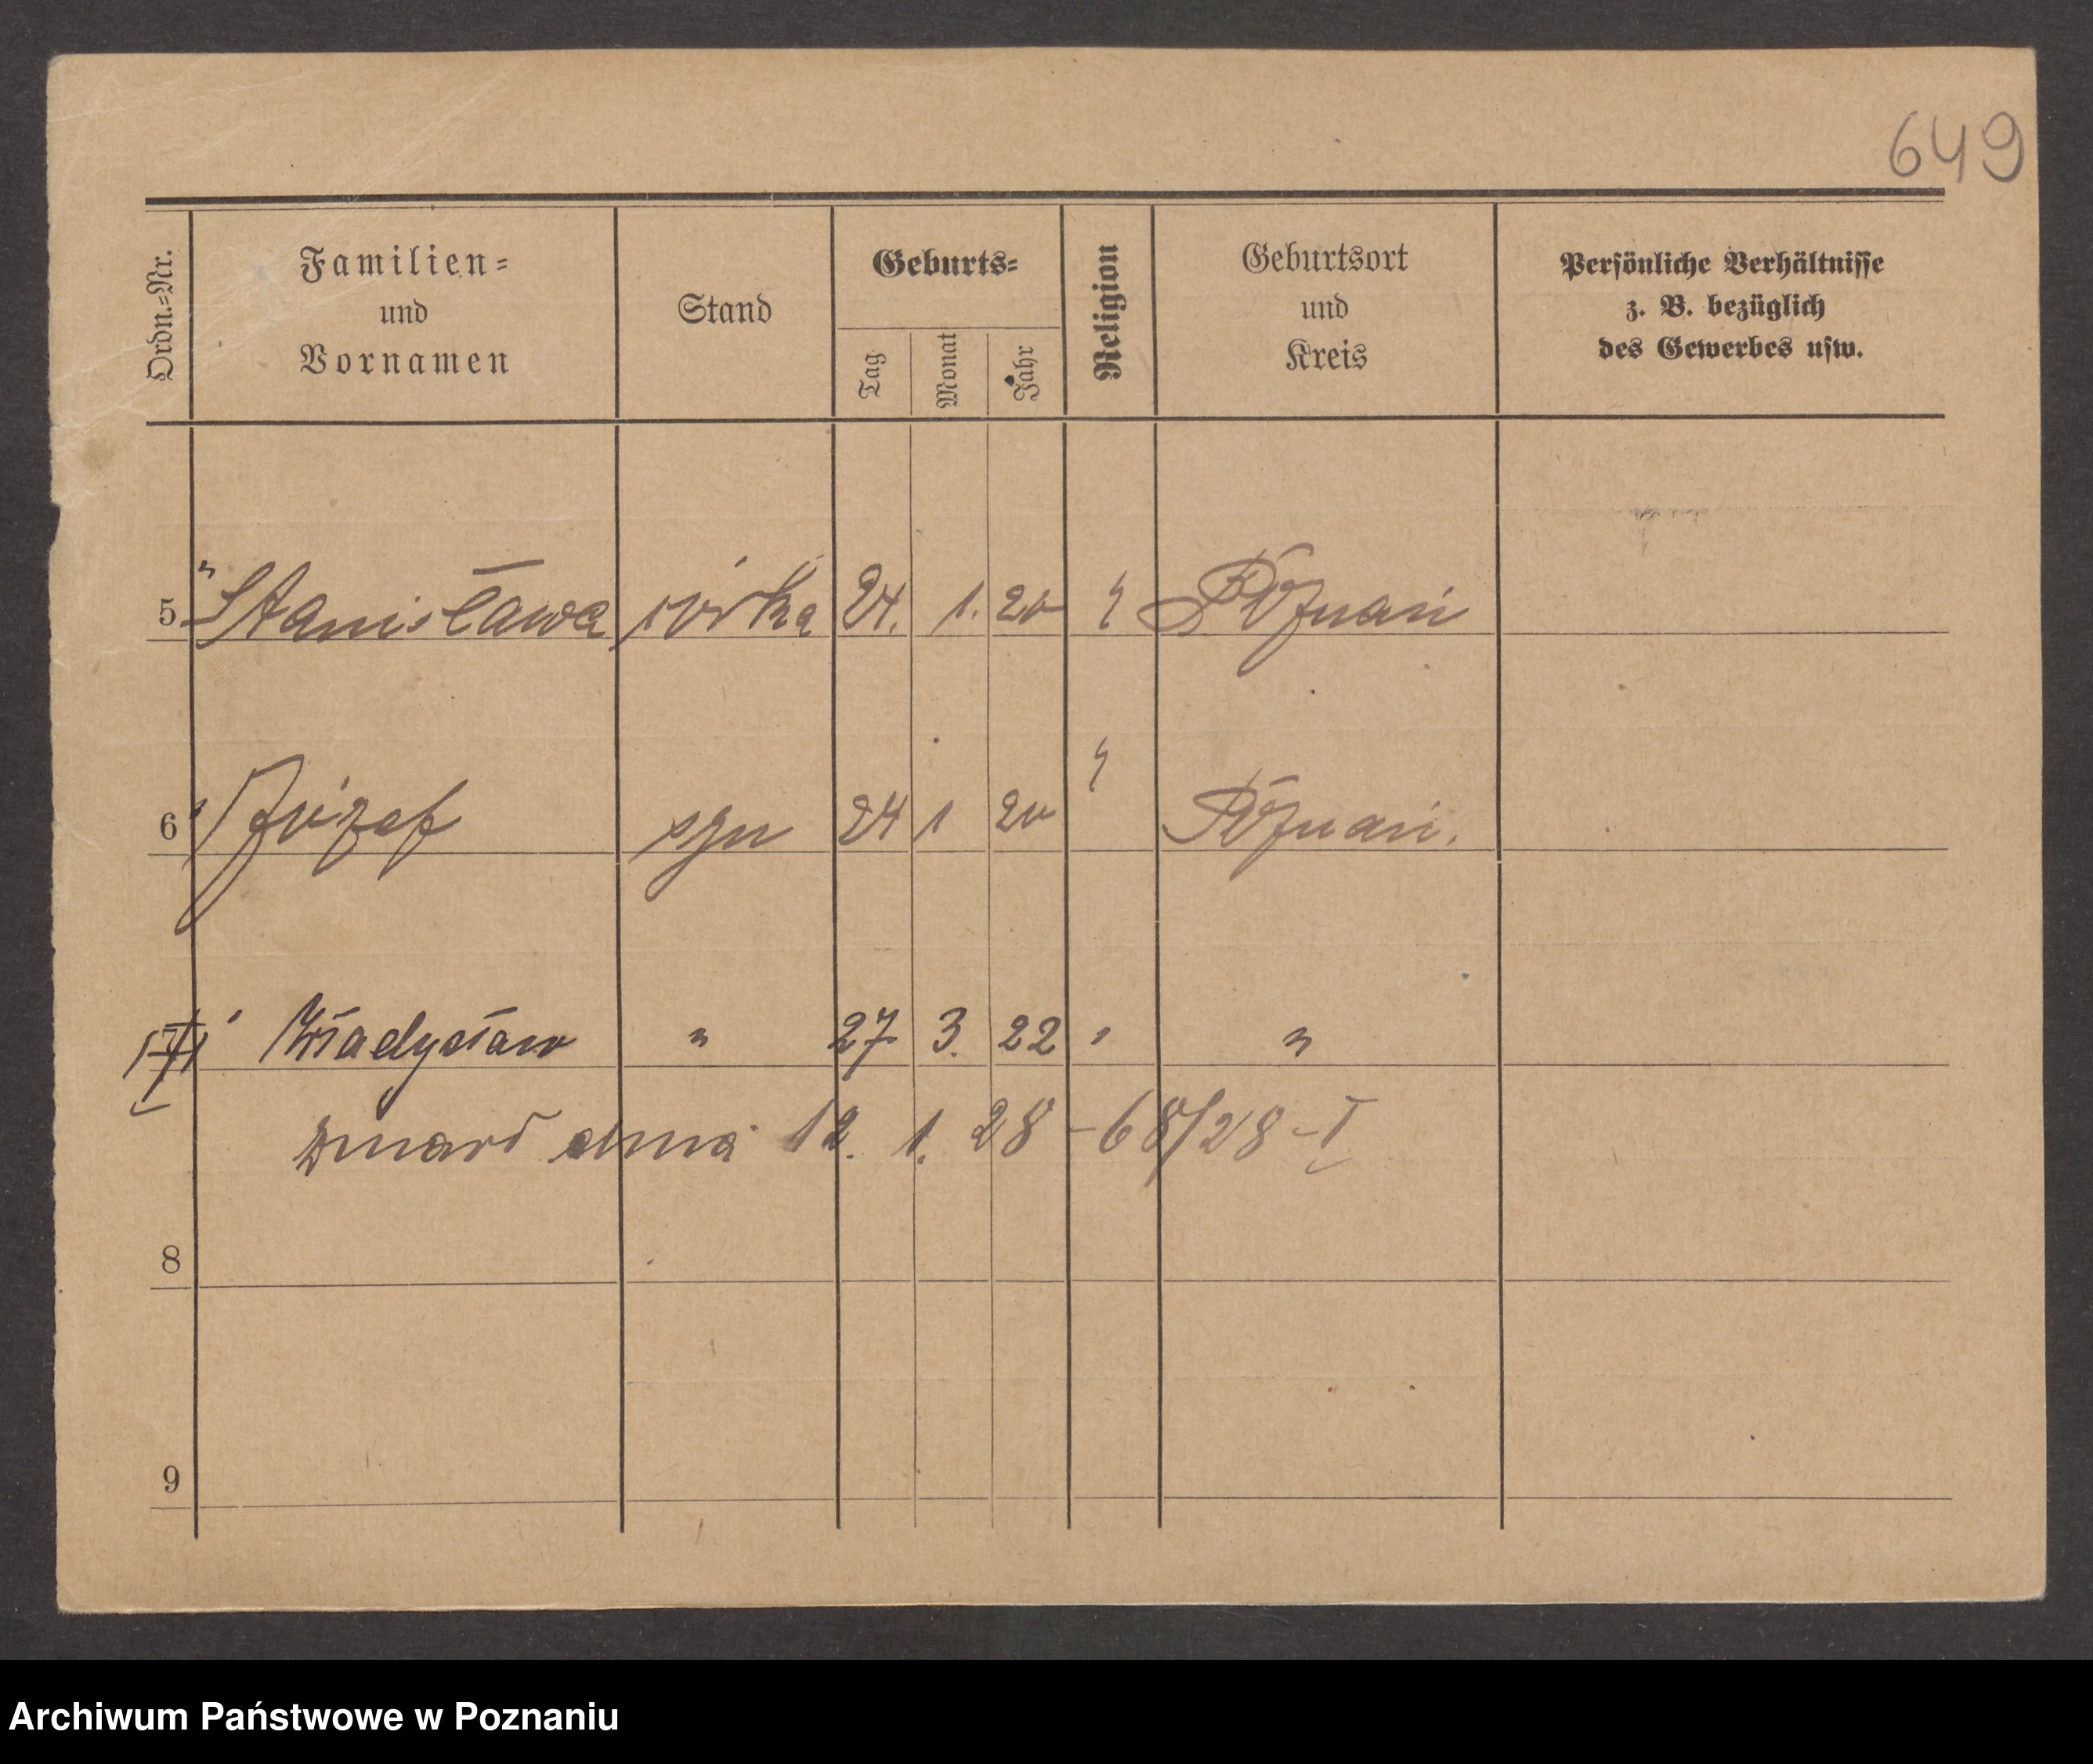 649
Ordn.=Nr.
Familien=
und
Vornamen
Stand
Geburts=
Tag
Monat
Jahr
Religion
Geburtsort
und
Kreis
Persönliche Verhältnisse
z. B. bezüglich
des Gewerbes usw.
5 " Stanisława córka 24. 1. 20 " Poznań
6 " Józef syn 24 1 20 " Poznań.
7 " Władysław " 27 3. 22 " "
zmarł dnia 12. 1. 28 - 68/28 - I
8
9
Archiwum Państwowe w Poznaniu